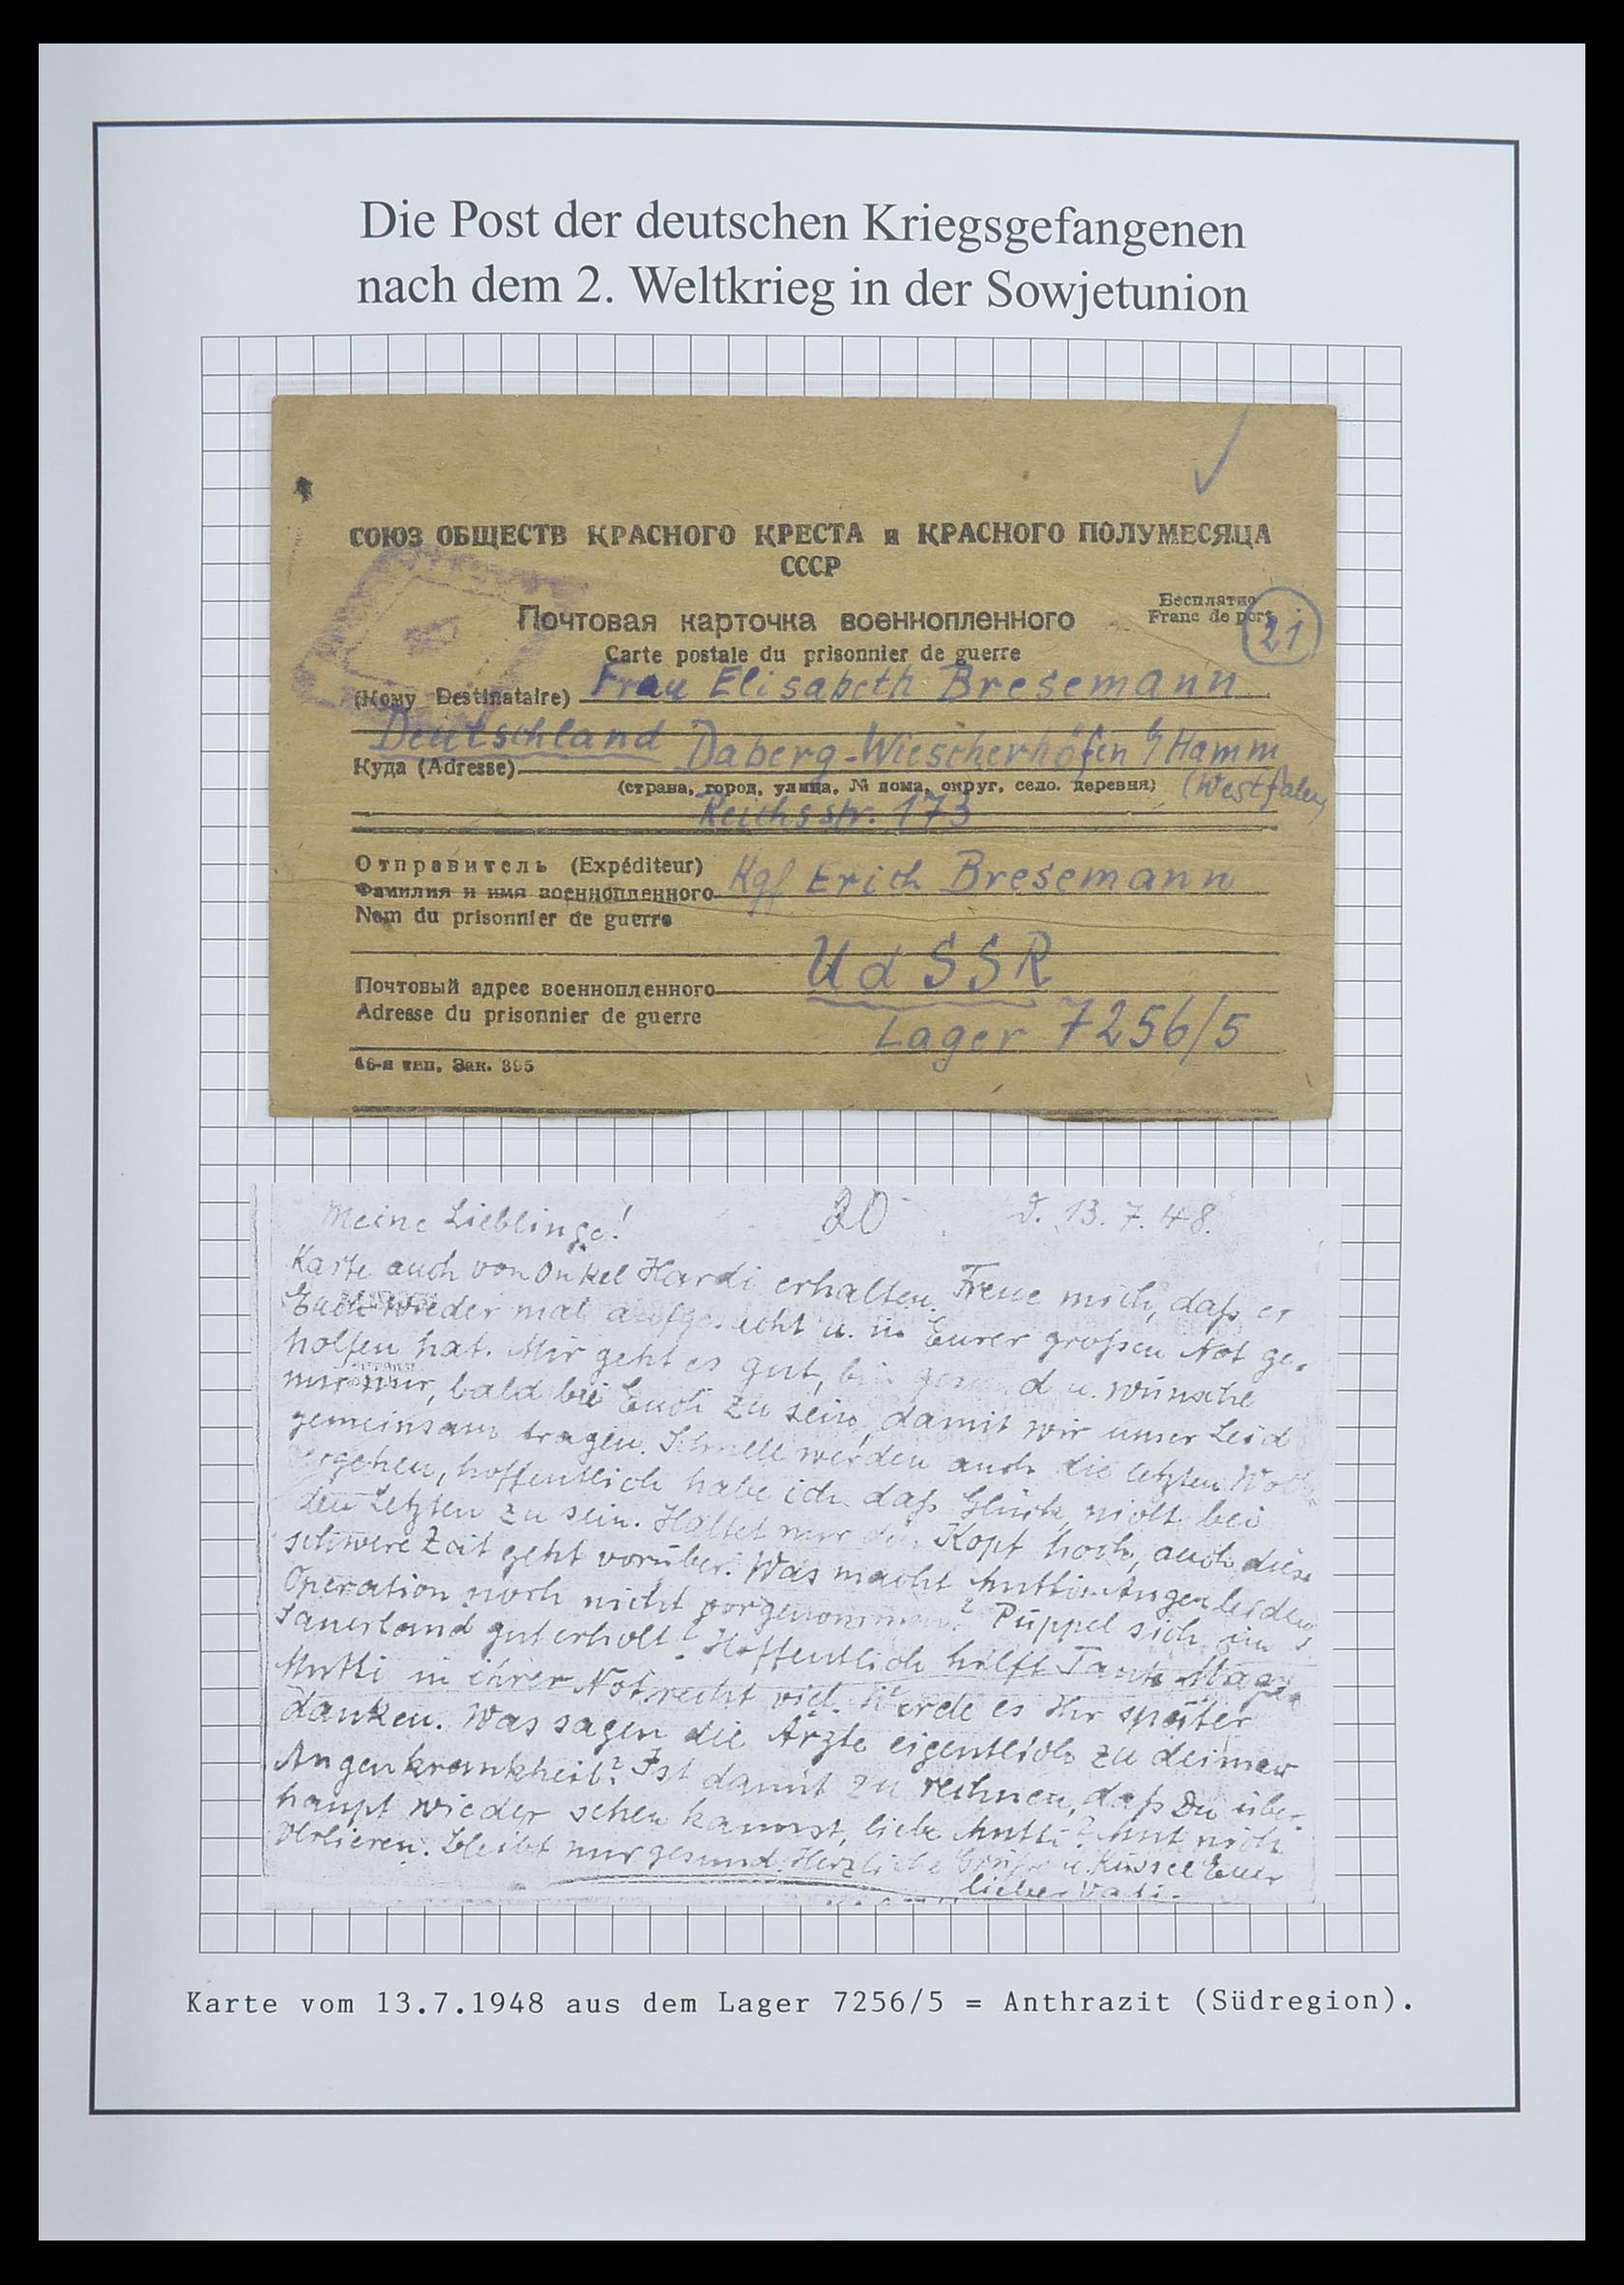 Die Post der deutschen Kriegsgefangenen
nach dem 2. Weltkrieg in der Sowjetunion
СОЮЗ ОБЩЕСТВ КРАСНОГО КРЕСТА и КРАСНОГО ПОЛУМЕСЯЦА
СССР
Бесплатно
Franc de port
21
Почтовая карточка военнопленного
Carte postale du prisonnier de guerre
(Кому Destinataire) Frau Elisabeth Bresemann
Deutschland Daberg-Wiescherhöfen b/ Hamm
Куда (Adresse)
(страна, город, улица, № дома, округ, село, деревня) (Westfalen)
Reichsstr. 173
Отправитель (Expéditeur)
Фамилия и имя военнопленного Kgf Erich Bresemann
Nom du prisonnier de guerre
UdSSR
Почтовый адрес военнопленного
Adresse du prisonnier de guerre
Lager 7256/5
16-я тип. Зак. 395
Meine Lieblinge! 20 d. 13.7.48.
Karte auch von Onkel Hardi erhalten. Freue mich, daß er
Euch wieder mal u. in Eurer großen Not ge-
holfen hat. Mir geht es gut, bin gesund u. wünsche
mir nur, bald bei Euch zu sein, damit wir unser Leid
gemeinsam tragen. Schnell werden auch die letzten
vergehen, hoffentlich habe ich daß Glück, nicht bei
den Letzten zu sein. Haltet nur den Kopf hoch, auch diese
schwere Zeit geht vorüber. Was macht Muttis Augenleiden,
Operation noch nicht vorgenommen? Püppel sich im
Sauerland gut erholt? Hoffentlich hilft Tante
Mutti in ihrer Not recht viel. Werde es Ihr später
danken. Was sagen die Ärzte eigentlich zu deiner
Augenkrankheit? Ist damit zu rechnen, daß Du über-
haupt wieder sehen kannst, liebe Mutti? Mut nicht
verlieren. Bleibt nur gesund. Herzliche Grüße u. Küsse Euer
lieber Vati.
Karte vom 13.7.1948 aus dem Lager 7256/5 = Anthrazit (Südregion).